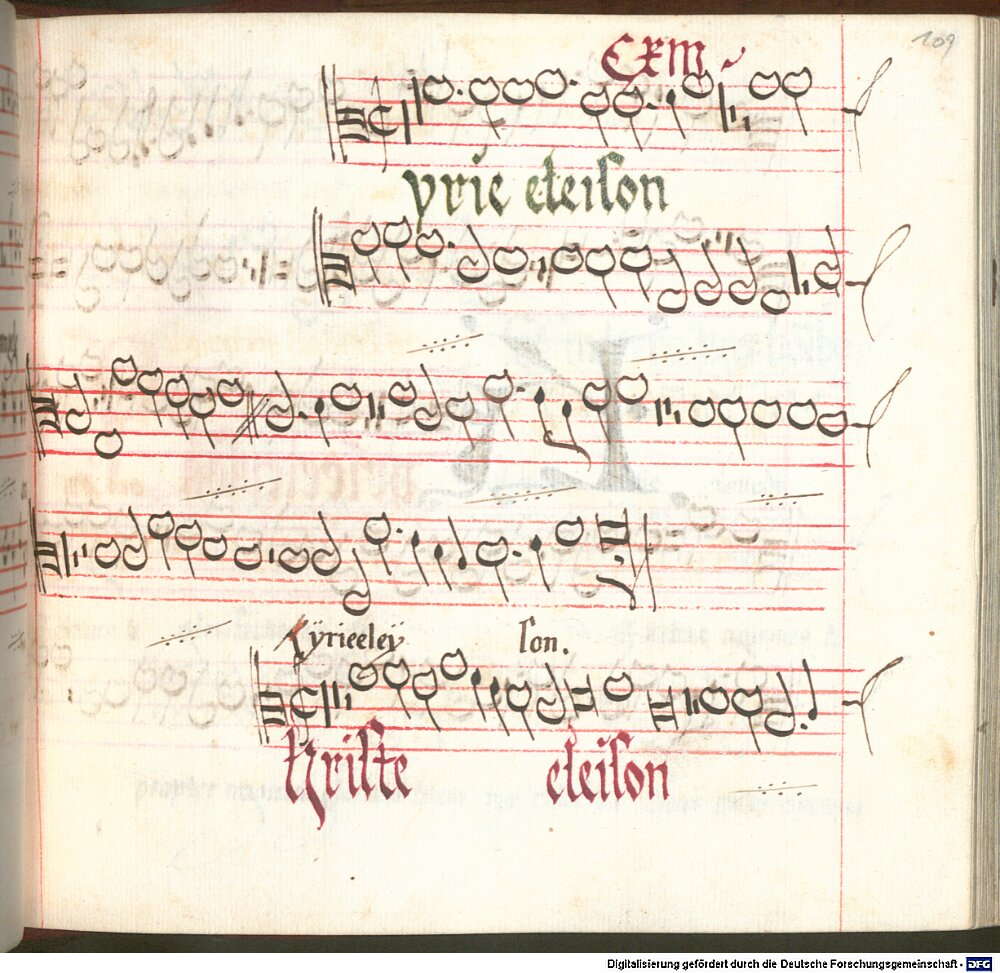 109
CXIII
yrie eleison
kyrieeley son.
Christe eleison
Digitalisierung gefördert durch die Deutsche Forschungsgemeinschaft - DFG